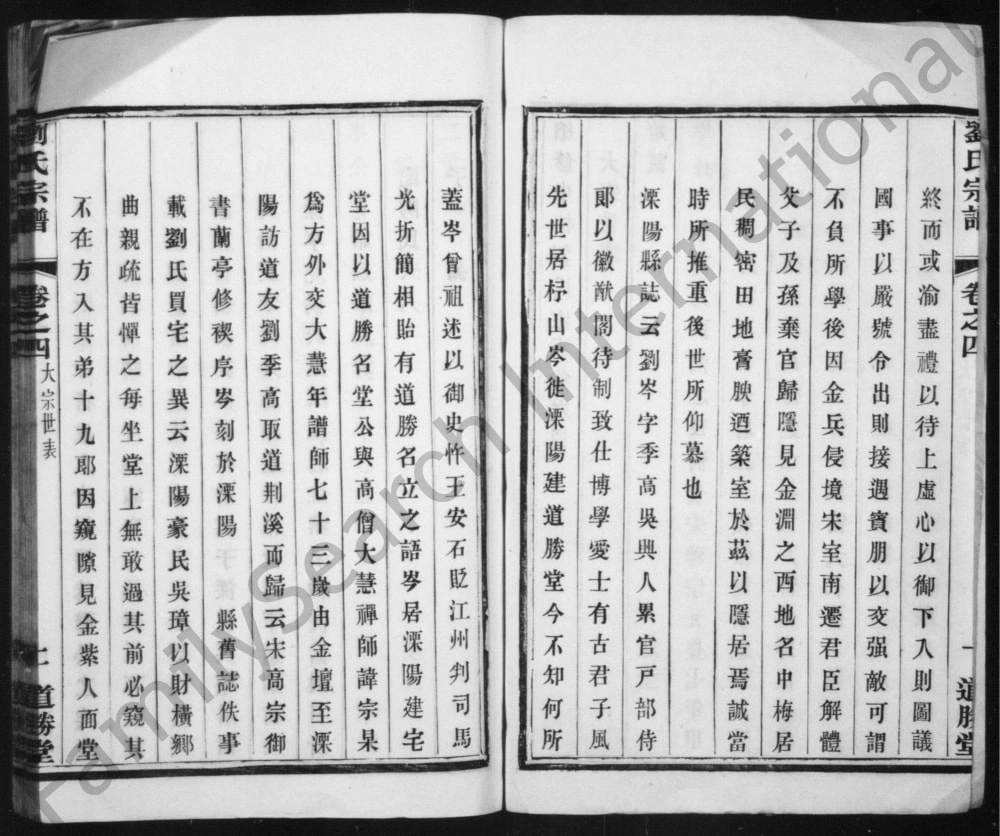 劉氏宗譜 卷之四 一 道勝堂
終而或渝盡禮以待上虛心以御下入則圖議
國事以嚴號令出則接遇賓朋以交强敵可謂
不負所學後因金兵侵境宋室南遷君臣解體
父子及孫棄官歸隱見金淵之西地名中梅居
民稠密田地膏腴迺築室於茲以隱居焉誠當
時所推重後世所仰慕也
溧陽縣誌云劉岑字季高吳興人累官戸部侍
郞以徽猷閣待制致仕博學愛士有古君子風
先世居杼山岑徙溧陽建道勝堂今不知何所
蓋岑曾祖述以御史忤王安石貶江州判司馬
光折簡相貽有道勝名立之語岑居溧陽建宅
堂因以道勝名堂公與高僧大慧禪師諱宗杲
爲方外交大慧年譜師七十三歲由金壇至溧
陽訪道友劉季高取道荆溪而歸云宋高宗御
書蘭亭修禊序岑刻於溧陽 縣舊誌佚事
載劉氏買宅之異云溧陽豪民吳璋以財橫鄉
曲親疏皆憚之每坐堂上無敢過其前必窺其
不在方入其弟十九郞因窺隙見金紫人而堂
劉氏宗譜 卷之四 大宗世表 二 道勝堂
FamilySearch International